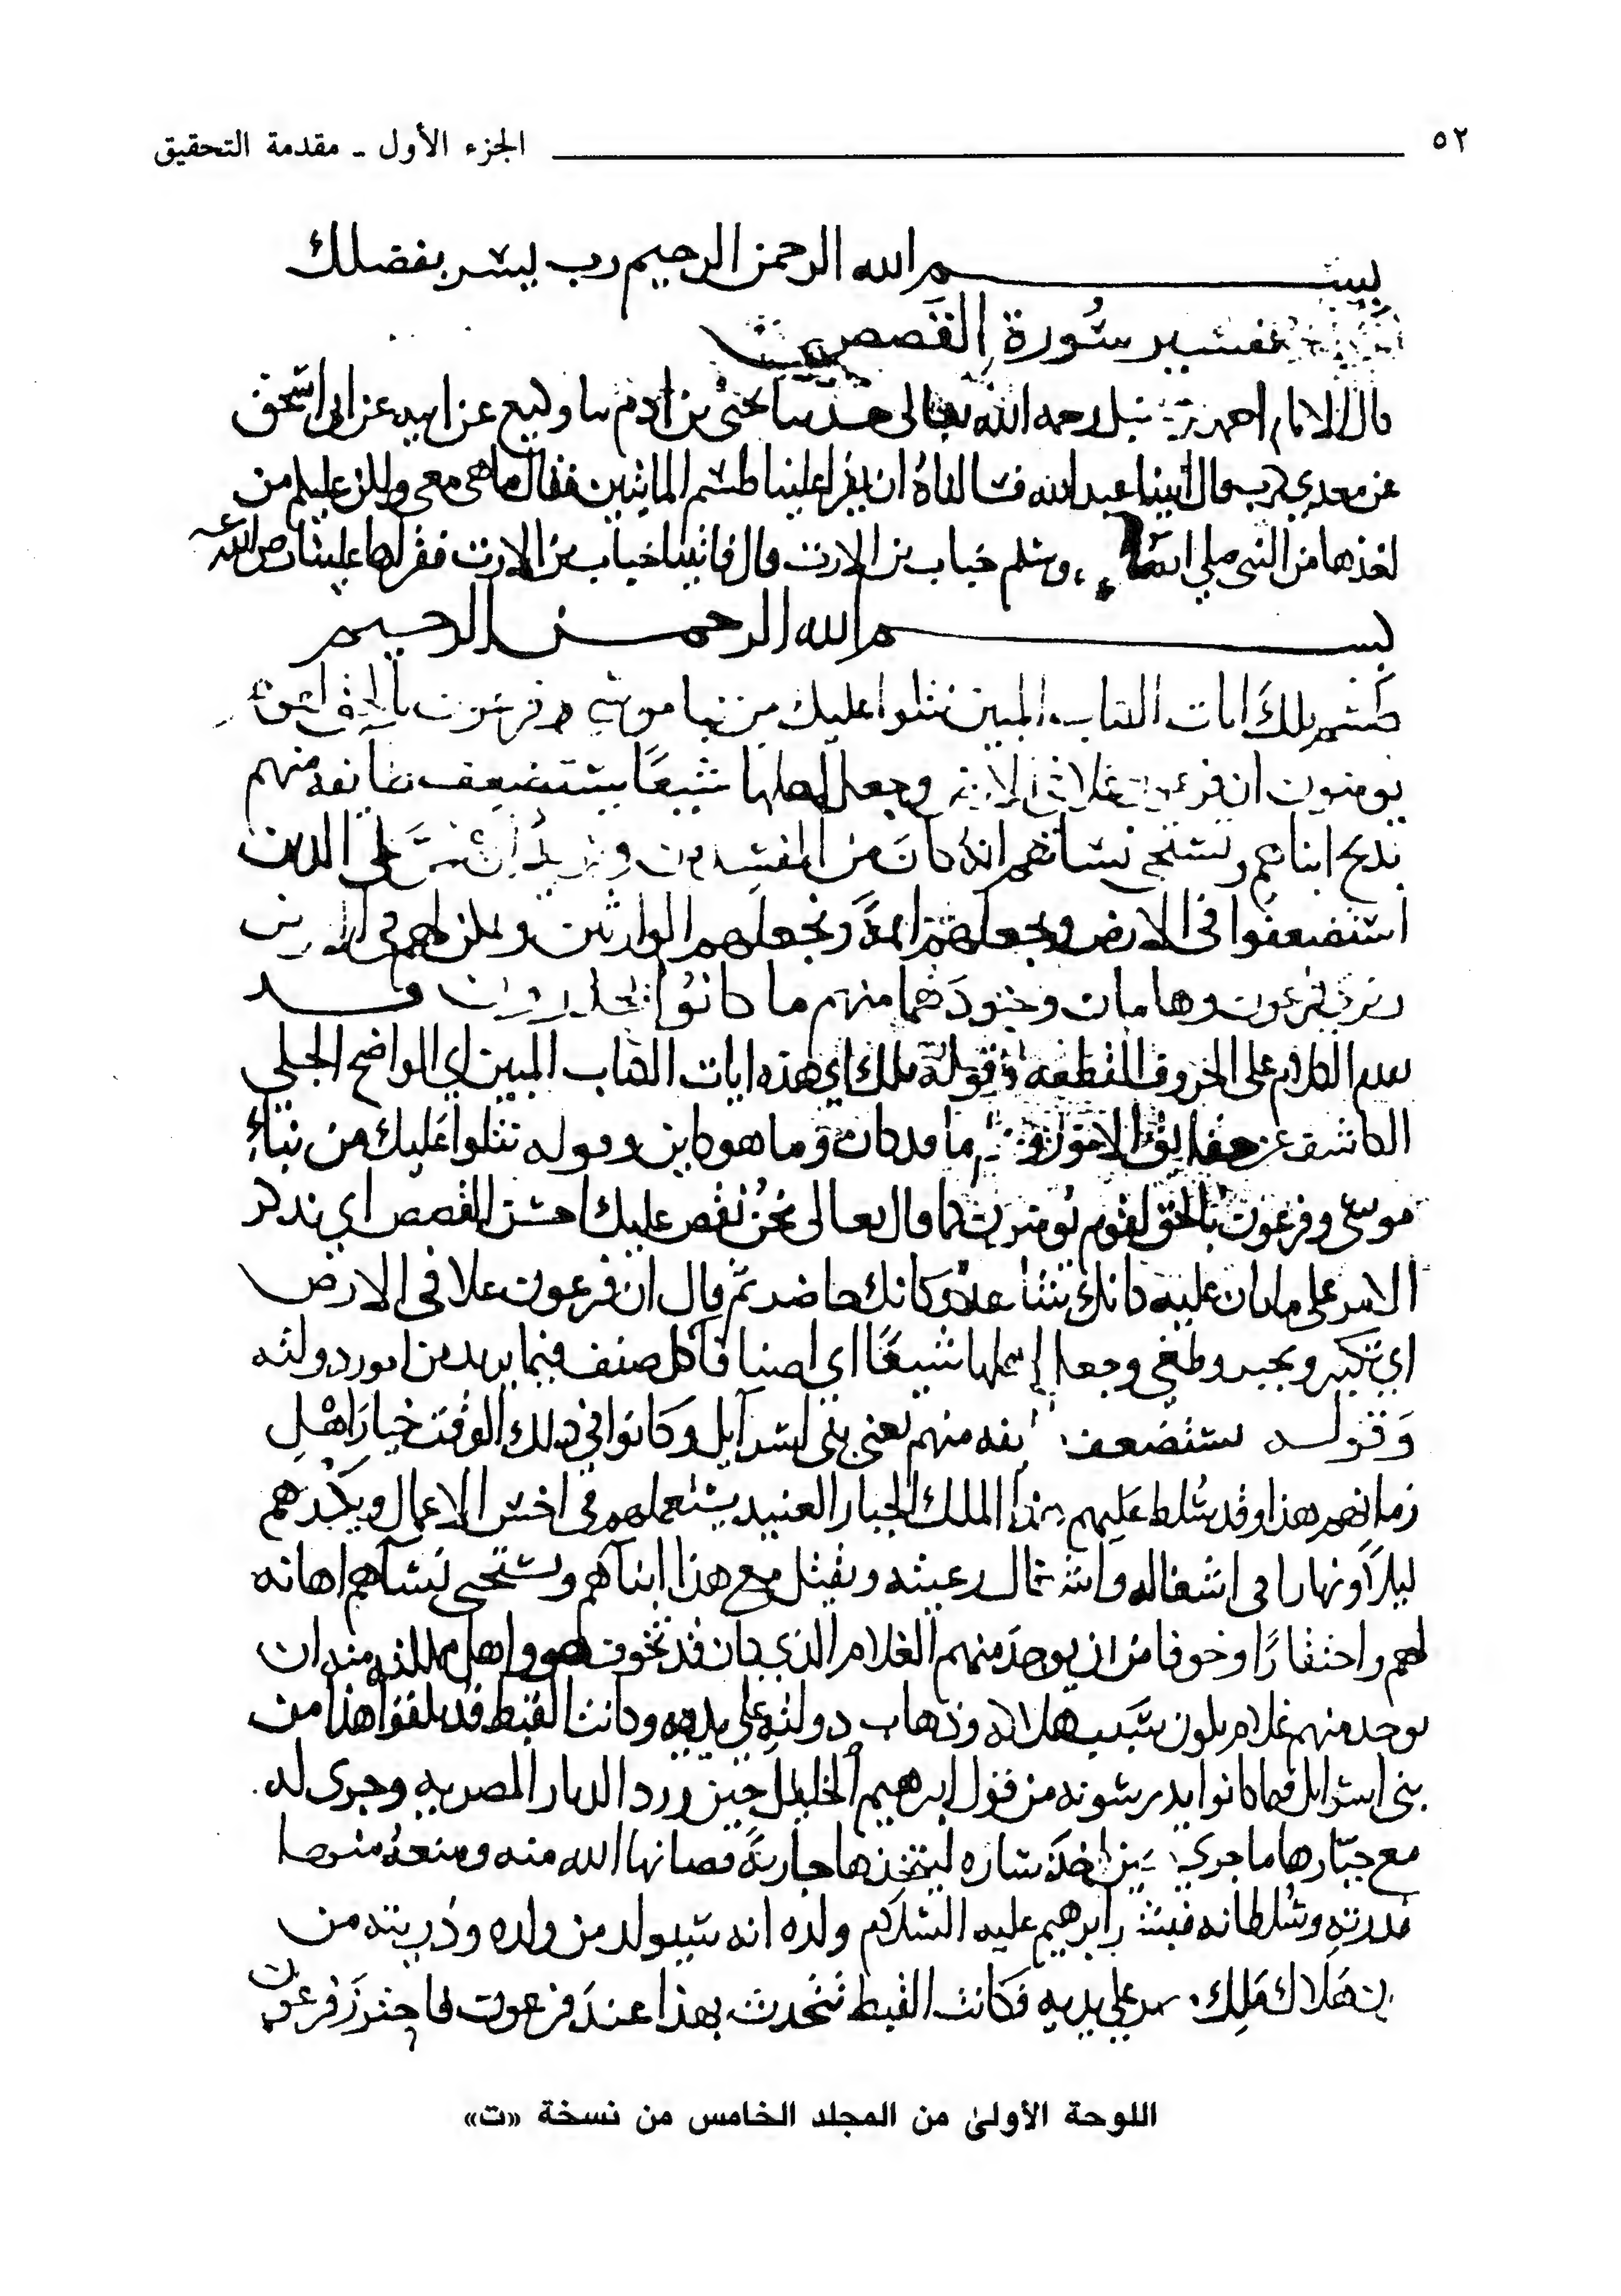 ٥٢ الجزء الأول ـ مقدمة التحقيق
بسم الله الرحمن الرحيم رب يسر بفضلك
تفسير سورة القصص
قال الامام احمد بن حنبل رحمه الله تعالى حدثنا يحيى بن ادم ثنا وكيع عن ابيه عن ابي اسحق
عن معدي كرب قال اتينا عبد الله فسالناه ان يقرا علينا طسم المائتين فقال ما هي معي ولكن عليكم من
اخذها من النبي صلى الله وسلم خباب بن الارت قال فاتينا خباب بن الارت فقراها علينا رضي الله عنه
بسم الله الرحمن الرحيم
طسم تلك ايات الكتاب المبين نتلوا عليك من نبا موسى وفرعون بالحق لقوم
يومنون ان فرعون علا في الارض وجعل اهلها شيعًا يستضعف طايفة منهم
يذبح ابناهم ويستحي نساهم انه كان من المفسدين ونريد ان نمن على الذين
استضعفوا في الارض ونجعلهم ايمةً ونجعلهم الوارثين ونمكن لهم في الارض
ونرى فرعون وهامان وجنودهما منهم ما كانوا يحذرون قد
تقدم الكلام على الحروف المقطعه وقوله تلك اي هذه ايات الكتاب المبين اي الواضح الجلي
الكاشف عن حقايق الامور وعلم ما قد كان وما هو كاين وقوله نتلوا عليك من نباء
موسى وفرعون بالحق لقوم يومنون كما قال تعالى نحن نقص عليك احسن القصص اي نذكر
الامر على ما كان عليه كانك تشاهد وكانك حاضر ثم قال ان فرعون علا في الارض
اي تكبر وتجبر وطغى وجعل اهلها شيعًا اي اصنافا كل صنف فيما يريد من امور دولته
وقوله يستضعف طايفه منهم يعني بني اسرآيل وكانوا في ذلك الوقت خيار اهل
زمانهم هذا وقد سلط عليهم هذا الملك الجبار العنيد يستعملهم في اخس الاعمال ويكدهم
ليلاً ونهارا في اشغاله واشغال رعيته ويقتل مع هذا ابناهم ويستحيي نساهم اهانه
لهم واحتقارًا وخوفا من ان يوجد منهم الغلام الذي كان قد تخوف هو واهل مملكته منه ان
يوجد منهم غلام يكون سبب هلاكه وذهاب دولته على يديه وكانت القبط قد تلقوا هذا من
بني اسرايل فيما كانوا يدرسونه من قول ابرهيم الخليل حين ورد الديار المصريه وجرى له
مع جبارها ما جرى حين اخذ ساره ليتخذها جاريةً فصانها الله منه ومنعه منها
بقدرته وسلطانه فبشر ابرهيم عليه السلام ولده انه سيولد من ولده وذريته من
يكون هلاك ملك مصر على يديه فكانت القبط تتحدث بهذا عند فرعون فاحترز فرعون
اللوحة الأولى من المجلد الخامس من نسخة «ت»